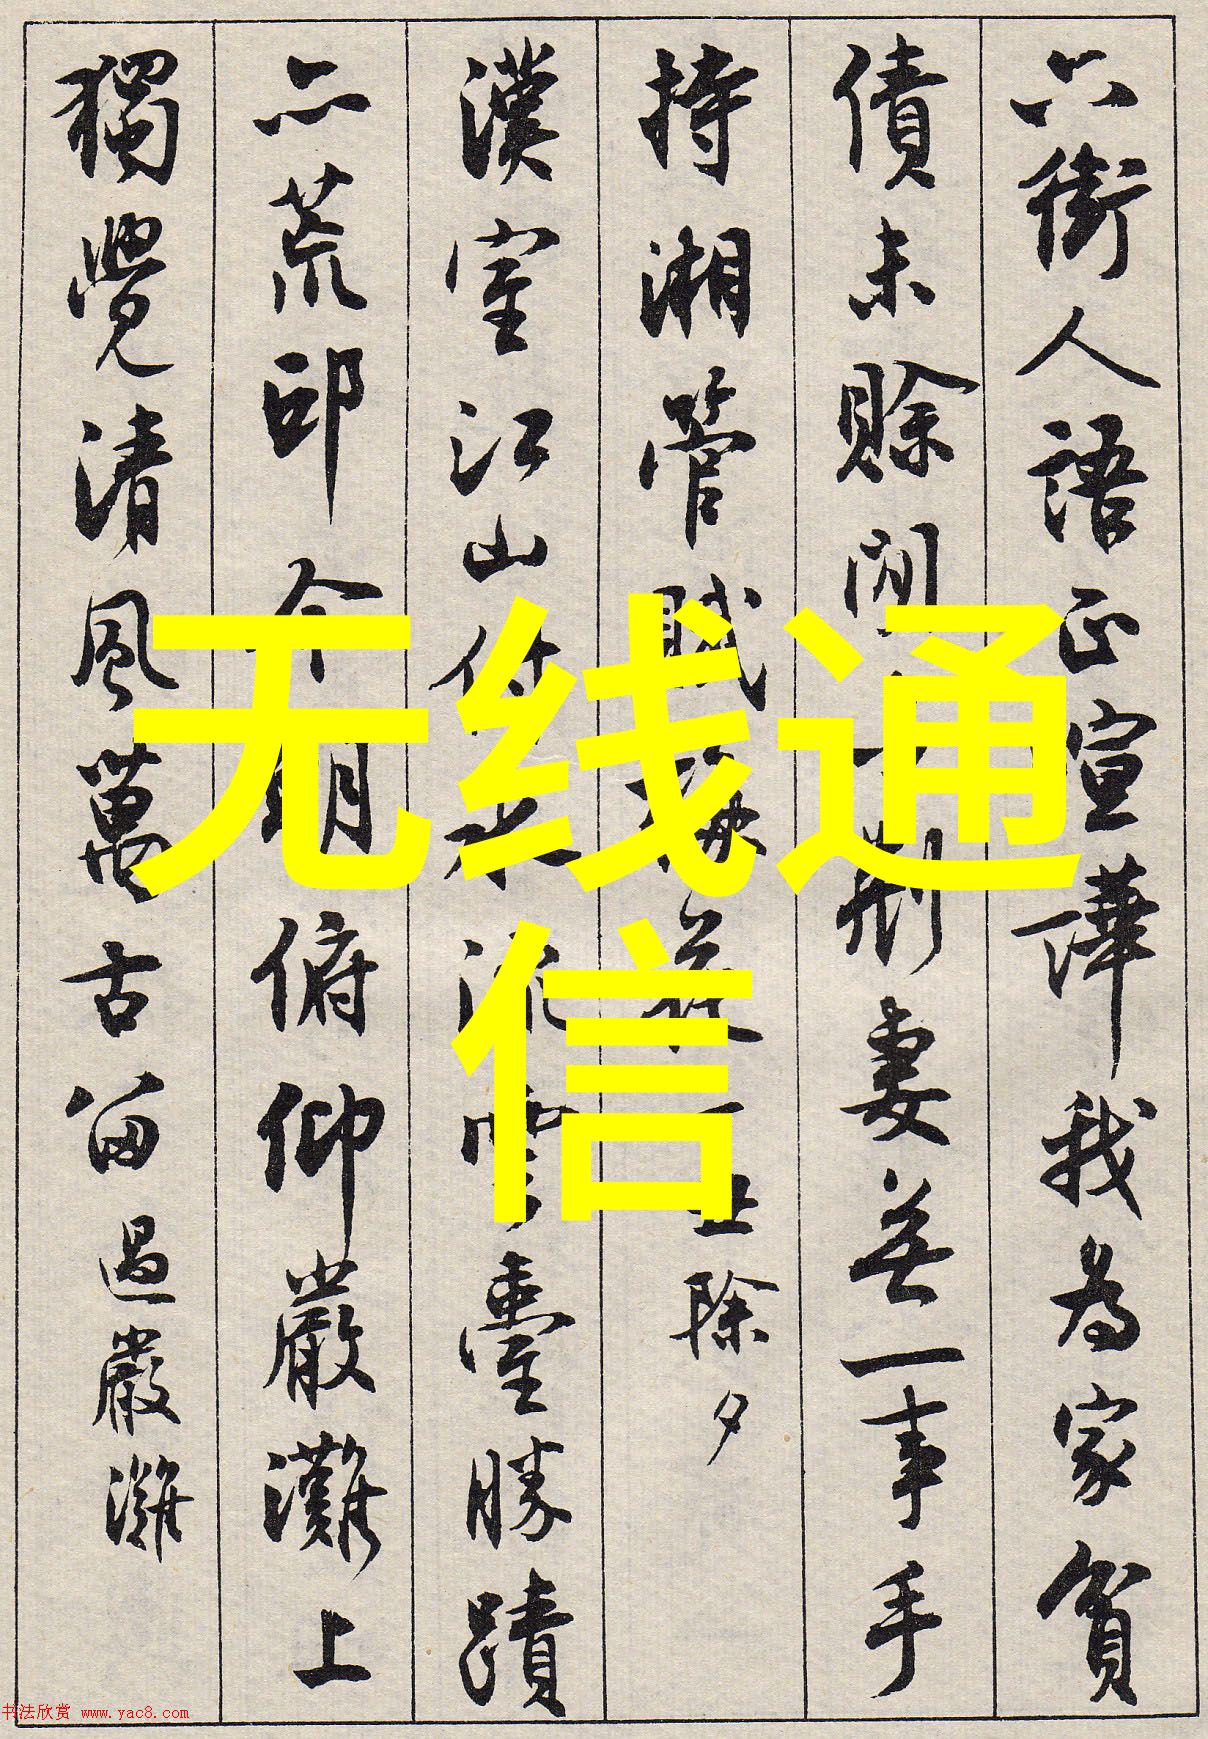 六街人語正喧譁我為家貧
債未賒閒荆妻無一事手
持湘管賦梅花 除夕
漢室江山付水流雲臺勝蹟
亦荒邱今朝俯仰嚴灘上
獨覺清風萬古留 過嚴灘
无线通
信
书法欣赏 www.yac8.com